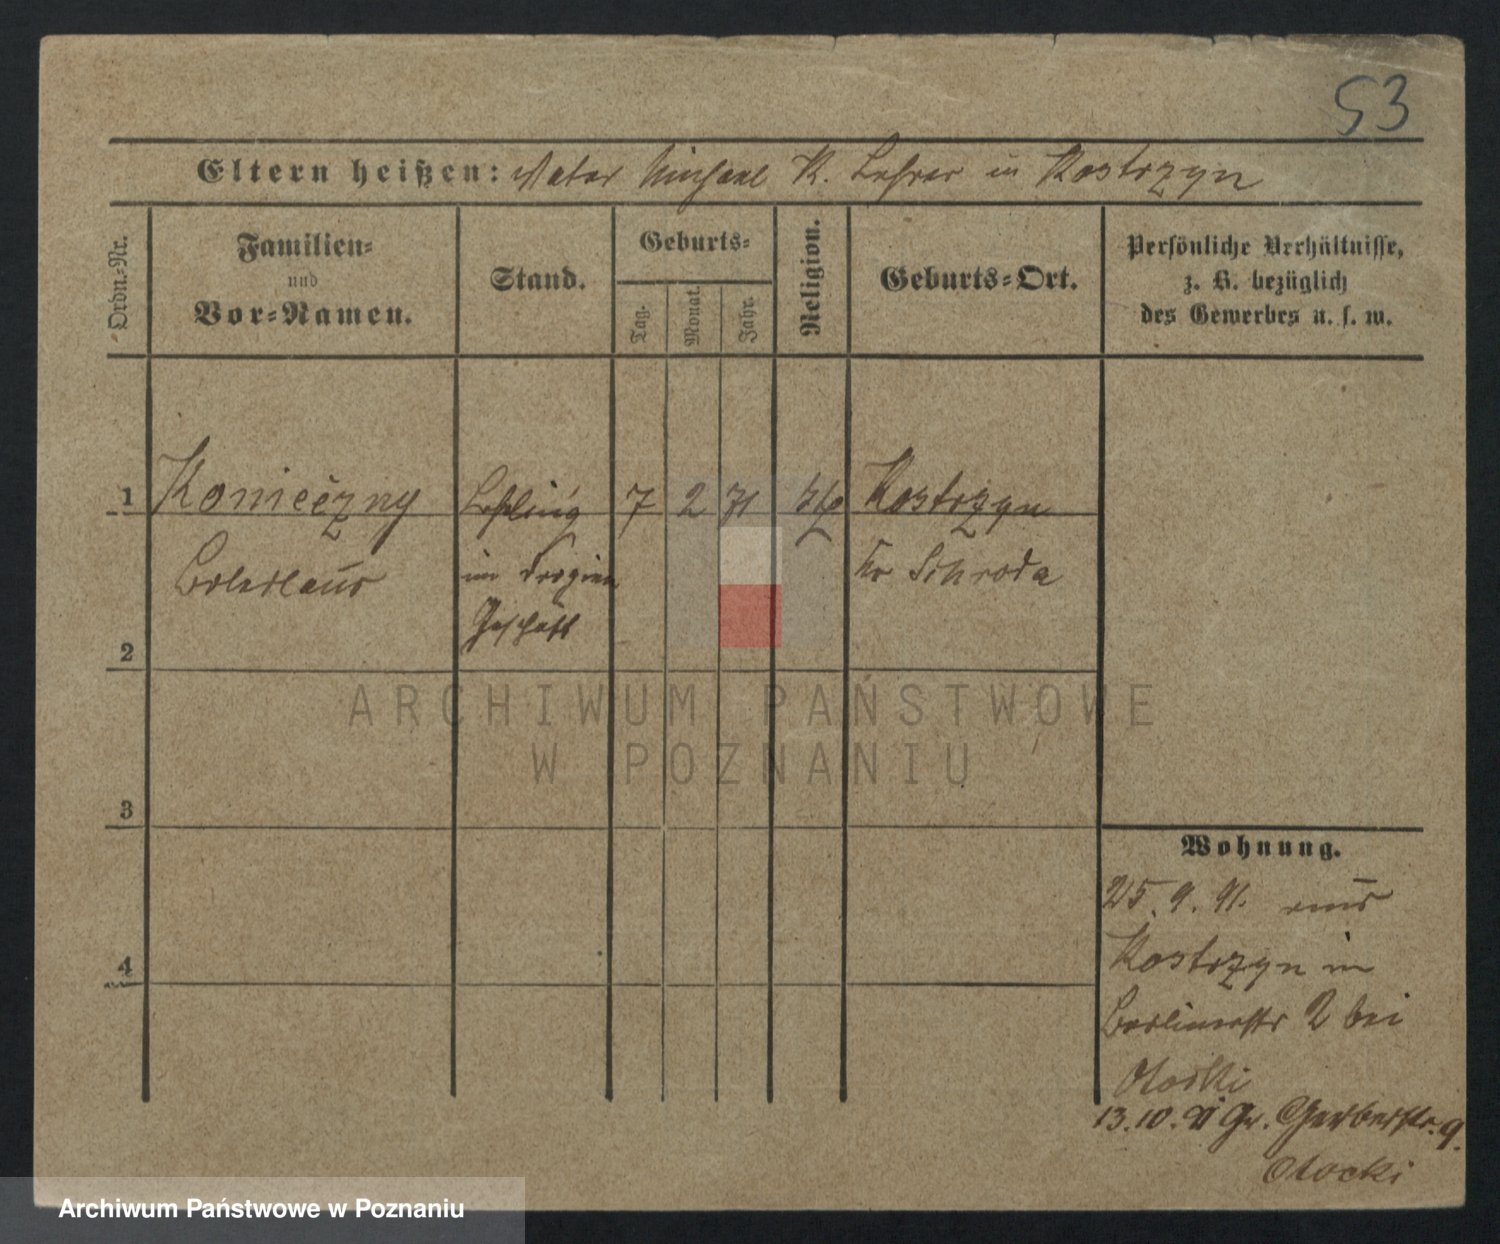 53
Eltern heißen: Vater Michael K. Lehrer in Kostrzyn
Ordn.-Nr.
Familien-
und
Vor-Namen.
Stand.
Geburts-
Tag.
Monat.
Jahr.
Religion.
Geburts-Ort.
Persönliche Verhältnisse,
z. B. bezüglich
des Gewerbes u. s. w.
1 Konieczny Lehrling 7 2 71 kth Kostrzyn
Boleslaus im Drogien Kr Schroda
Geschäft
2
3
4
Wohnung.
25. 9. 91. aus
Kostrzyn in
Berlinerstr 2 bei
Otocki
13. 10. 91 Gr. Gerberstr. 9.
Otocki
ARCHIWUM PAŃSTWOWE
W POZNANIU
Archiwum Państwowe w Poznaniu